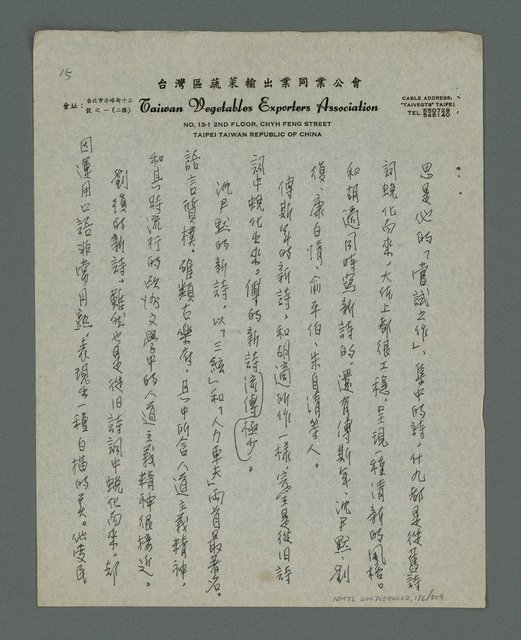 15
台灣區蔬菜輸出業同業公會
會址：台北市赤峰街十三號之一（二樓）
Taiwan Vegetables Exporters Association
CABLE ADDRESS:
"TAIVEGTS" TAIPEI
TEL 550729
548140
NO. 13-1 2ND FLOOR. CHYH FENG STREET
TAIPEI TAIWAN REPUBLIC OF CHINA
思是他的「嘗試之作」，集中的詩，什九都是從舊詩
詞蛻化而來，大体上都很工穩，呈現一種清新的風格。
和胡適同時寫新詩的，還有傅斯年、沈尹默、劉
復、康白情、俞平伯、朱自清等人。
傅斯年的新詩，和胡適所作一樣，完全是從旧詩
詞中蛻化出來。他的新詩流傳極少。
沈尹默的新詩，以「三絃」和「人力車夫」兩首最著名。
語言質樸，雖類古樂府，其中所含人道主義精神，
和其時流行的欧州文學中的人道主義精神很接近。
劉復的新詩，雖然也是從旧詩詞中蛻化而來，却
因運用口語非常圓熟，表現出一種白描的美。他受民
NMTL 20070590002, 176/509